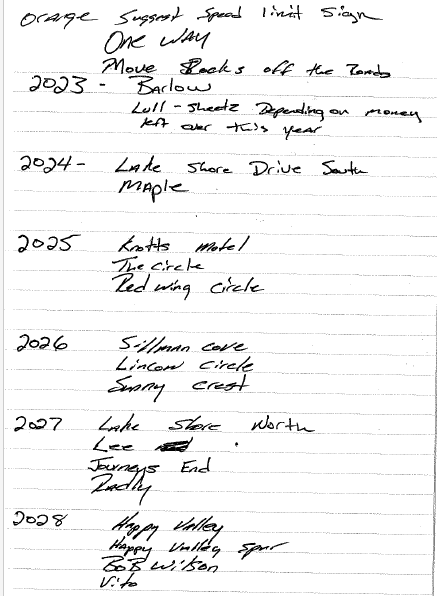 Orange Suggest Speed limit Sign
One Way
Move Rocks off the Roads
2023 - Barlow
Lull - Sheetz Depending on money
left over this year
2024 - Lake Shore Drive South
Maple
2025 Knotts motel
The circle
Red wing circle
2026 Sillman cove
Lincon circle
Sunny crest
2027 Lake Shore North
Lee
Journeys End
Radly
2028 Happy Valley
Happy Valley Spur
BoB Wilson
Vito